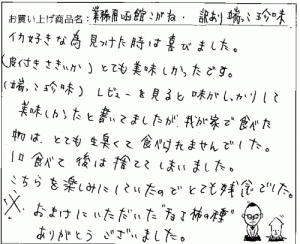 お買い上げ商品名:業務用函館こがね・訳あり端っこ珍味
イカ好きな為見つけた時は喜びました。
(皮付きさきいか)とても美味しかったです。
(端っこ珍味)レビューを見ると味がしっかりして
美味しかったと書いてましたが、我が家で食べた
物は、とても生臭くて食べられませんでした。
1口食べて後は捨ててしまいました。
こちらを楽しみにしていたのでとても残念でした。
※おまけにいただいた"柿の種"
ありがとうございました。